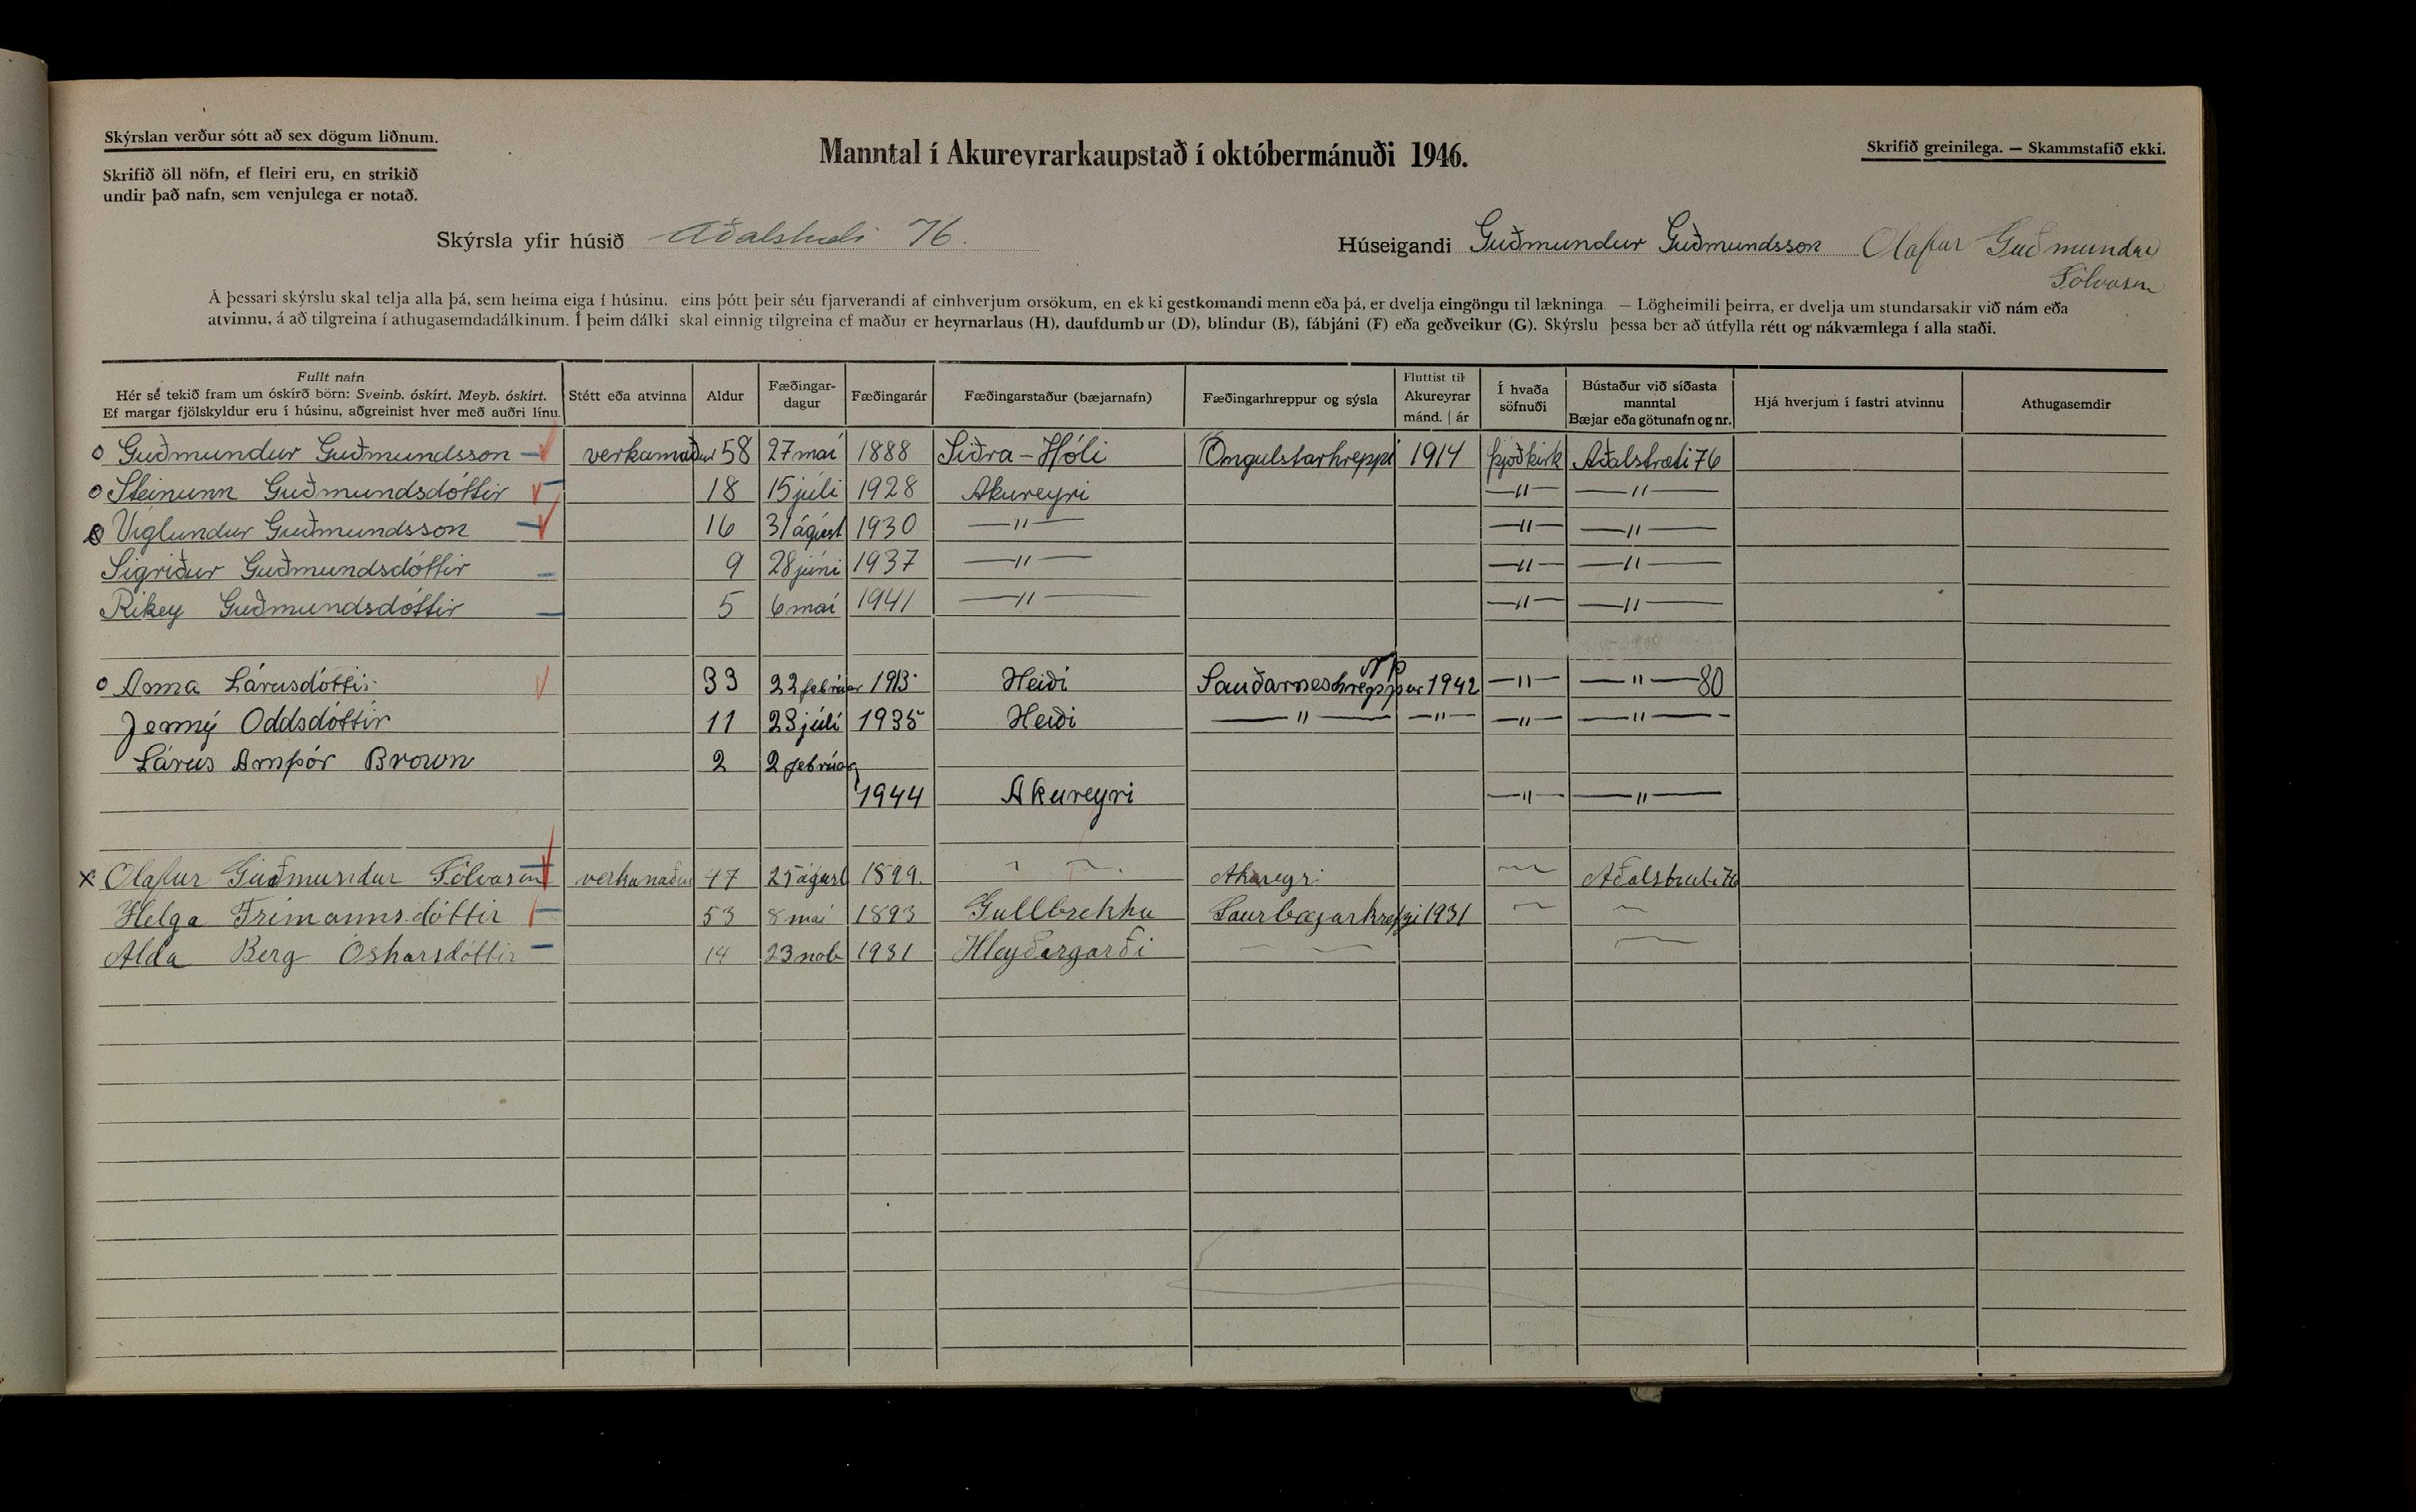 Skýrslan verður sótt að sex dögum liðnum.
Skrifið öll nöfn, ef fleiri eru, en strikið
undir það nafn, sem venjulega er notað.
Manntal í Akureyrarkaupstað í októbermánuði 1946.
Skrifið greinilega. — Skammstafið ekki.
Skýrsla yfir húsið Aðalstræti 76.
Húseigandi Guðmundur Guðmundsson Olafur Guðmundur
Sölvason
Á þessari skýrslu skal telja alla þá, sem heima eiga í húsinu, eins þótt þeir séu fjarverandi af einhverjum orsökum, en ekki gestkomandi menn eða þá, er dvelja eingöngu til lækninga. — Lögheimili þeirra, er dvelja um stundarsakir við nám eða
atvinnu, á að tilgreina í athugasemdadálkinum. Í þeim dálki skal einnig tilgreina ef maður er heyrnarlaus (H), daufdumbur (D), blindur (B), fábjáni (F) eða geðveikur (G). Skýrslu þessa ber að útfylla rétt og nákvæmlega í alla staði.
Fullt nafn
Hér sé tekið fram um óskírð börn: Sveinb. óskírt. Meyb. óskírt.
Ef margar fjölskyldur eru í húsinu, aðgreinist hver með auðri línu.
Stétt eða atvinna
Aldur
Fæðingar-
dagur
Fæðingarár
Fæðingarstaður (bæjarnafn)
Fæðingarhreppur og sýsla
Fluttist til
Akureyrar
mánd. | ár
Í hvaða
söfnuði
Bústaður við síðasta
manntal
Bæjar eða götunafn og nr.
Hjá hverjum í fastri atvinnu
Athugasemdir
o Guðmundur Guðmundsson verkamaður 58 27 maí 1888 Siðra-Hóli Öngulstarhreppi 1914 þjóðkirk Aðalstræti 76
o Steinunn Guðmundsdóttir 18 15 júli 1928 Akureyri —"— —"—
o Víglundur Guðmundsson 16 31 ágúst 1930 —"— —"— —"—
Sigriður Guðmundsdóttir 9 28 júni 1937 —"— —"— —"—
Rikey Guðmundsdóttir 5 6 maí 1941 —"— —"— —"—
o Anna Lárusdóttir 33 22 febrúar 1913 Heiði Sauðaneshreppur 1942 —"— —"— 80
Jenný Oddsdóttir 11 23 júlí 1935 Heiði —"— —"— —"— —"—
Lárus Arnþór Brown 2 2 febrúar
1944 Akureyri —"— —"—
x Olafur Guðmundur Sölvason verkamaður 47 25 ágúst 1899. Akureyri Aðalstræti 76
Helga Frimannsdóttir 53 8 mai 1893 Gullbrekku Saurbæjarhreppi 1931
Alda Berg Óskarsdóttir 14 23 nob 1931 Hleyðargarði